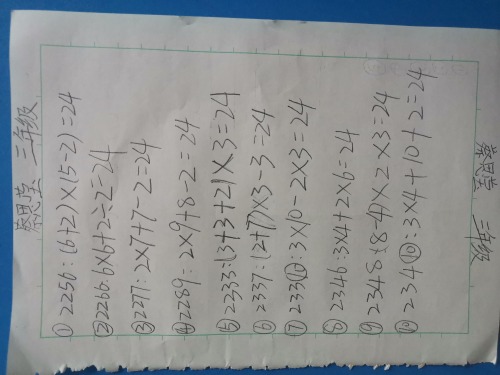 三年级
① 2256:(6+2)×(5-2)=24
② 2266:6×6+2÷2=24
③ 2277:2×7+7-2=24
④ 2289:2×9+8-2=24
⑤ 2333:(3+3+2)×3=24
⑥ 2337:(2+7)×3-3=24
⑦ 233⑩:3×10-2×3=24
⑧ 2346:3×4+2×6=24
⑨ 2348:(8-4)×2×3=24
⑩ 234⑩:3×4+10+2=24
三年级